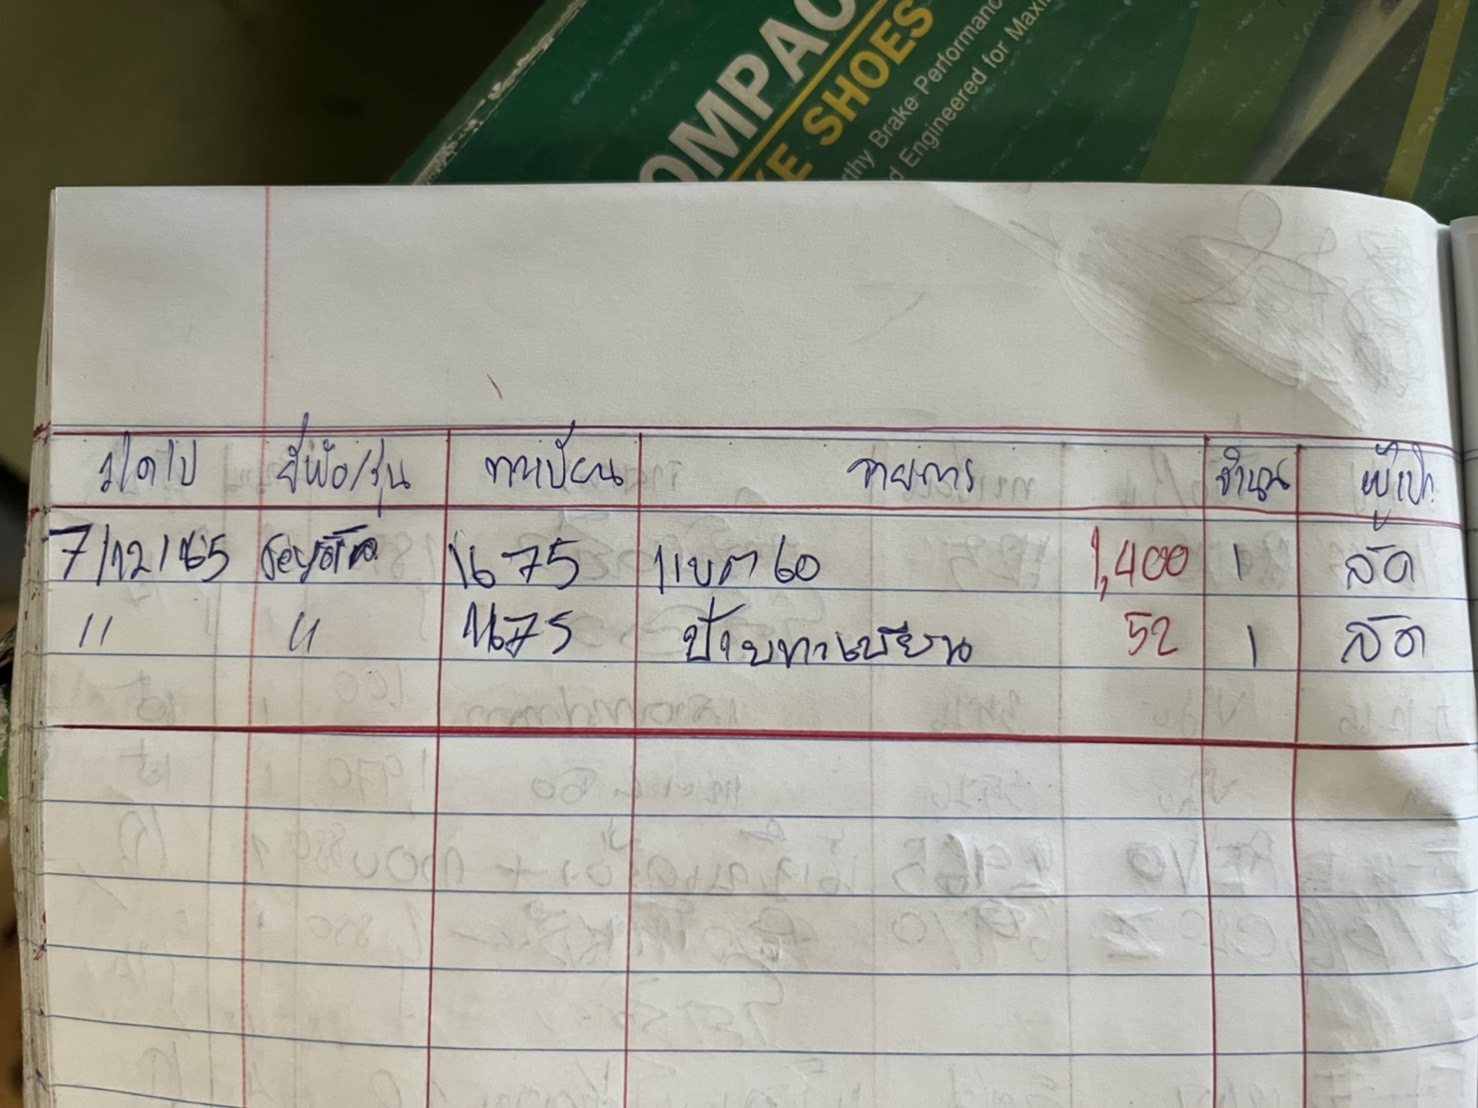 OMPAC
KE SHOES
rthy Brake Performanc
d Engineered for Maxi
ว/ด/ป ยี่ห้อ/รุ่น ทะเบียน รายการ จำนวน ผู้เบิก
7/12/65 1675 แบต 60 1,400 1 สัด
" " 1675 ป้ายทะเบียน 52 1 สัด